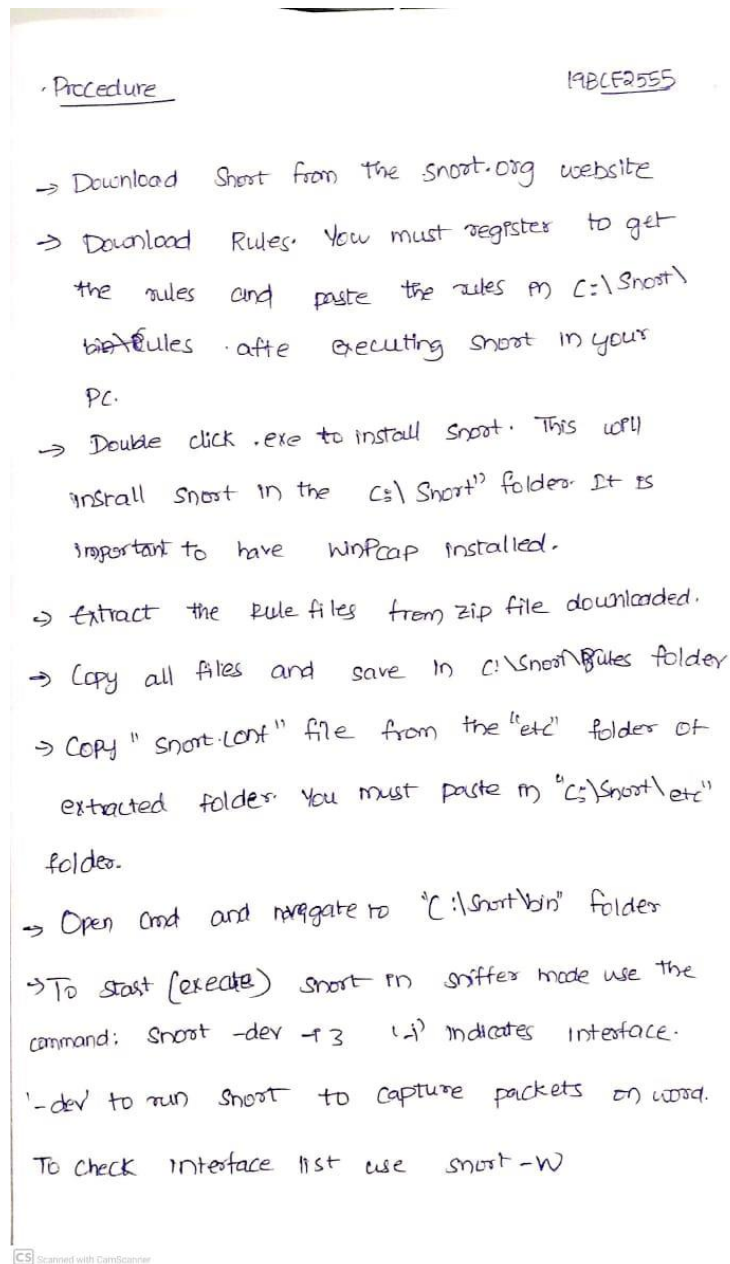 · Procedure 19BCE2555
→ Download Snort from the snort.org website
→ Download Rules. You must register to get
the rules and paste the rules in C:\Snort\
Rules . afte executing snort in your
PC.
→ Double click .exe to install snort. This will
install snort in the C:\ Snort" folder. It is
important to have WinPcap installed.
→ Extract the Rule files from zip file downloaded.
→ Copy all files and save in C:\Snort\Rules folder
→ Copy " snort.conf" file from the "etc" folder of
extracted folder. You must paste in "C:\Snort\etc"
folder.
→ Open Cmd and navigate to "C:\Snort\bin" folder
→ To start (execute) snort in sniffer mode use the
command: Snort -dev -i 3 '-i' indicates interface.
'-dev' to run Snort to capture packets on
To check interface list use snort -W
CS Scanned with CamScanner